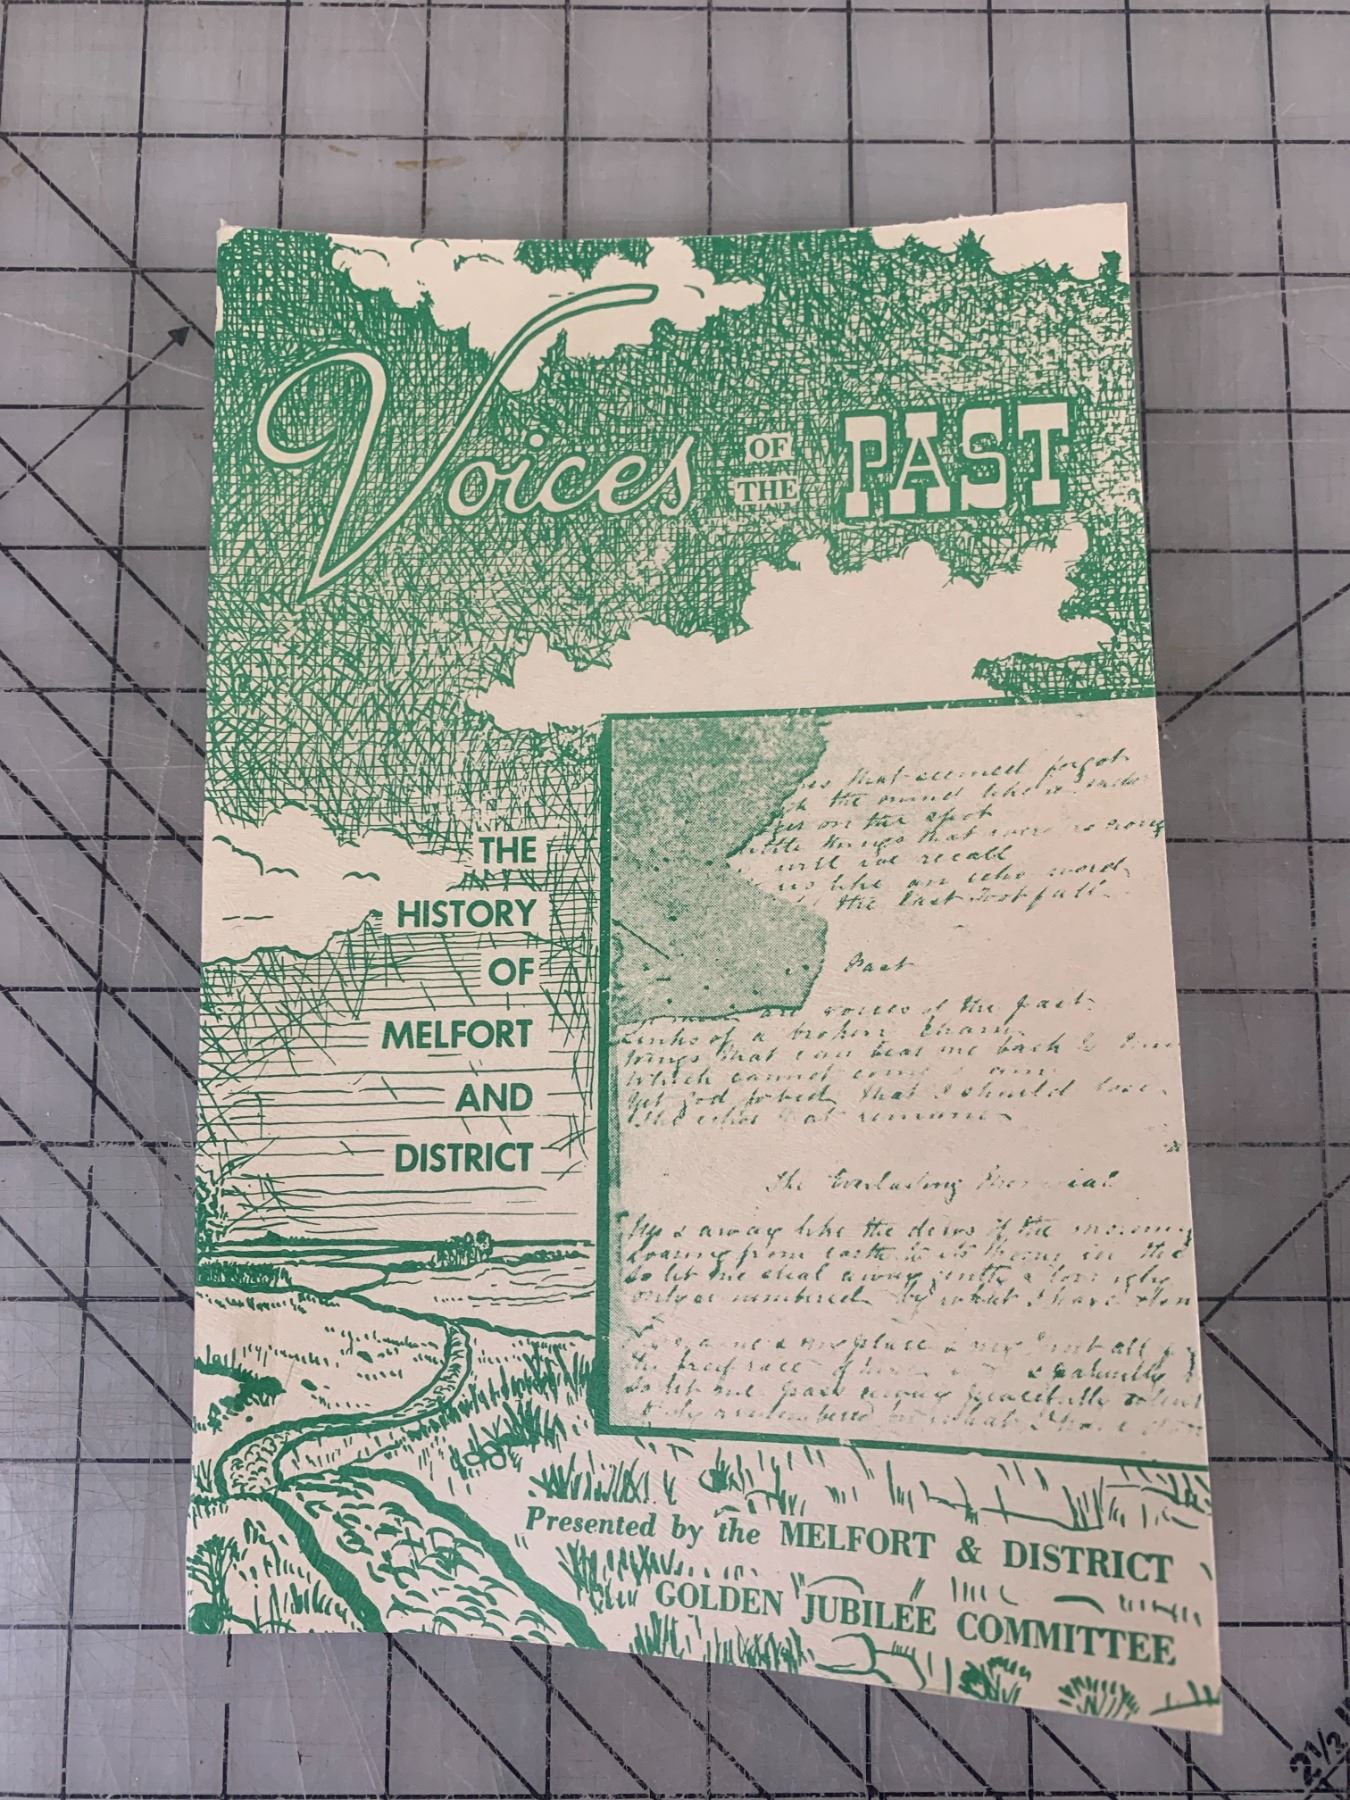 Voices OF THE PAST
THE
HISTORY
OF
MELFORT
AND
DISTRICT
that seemed forgot
the mind like a
on the spot
little things that were so
will we recall
us like an echo
the last footfall
Past
are voices of the past
Links of a broken chain
wings that can bear me back to
Which cannot come again
Yet God forbid that I should lose
the echoes that remain
The Everlasting Memorial
Up & away like the dews of the morning
soaring from earth to its home in the
So let me steal away gently & lovingly
only remembered by what I have done
So let me pass away peacefully silent
Only remembered by what I have done
Presented by the MELFORT & DISTRICT
GOLDEN JUBILEE COMMITTEE
2 1/2